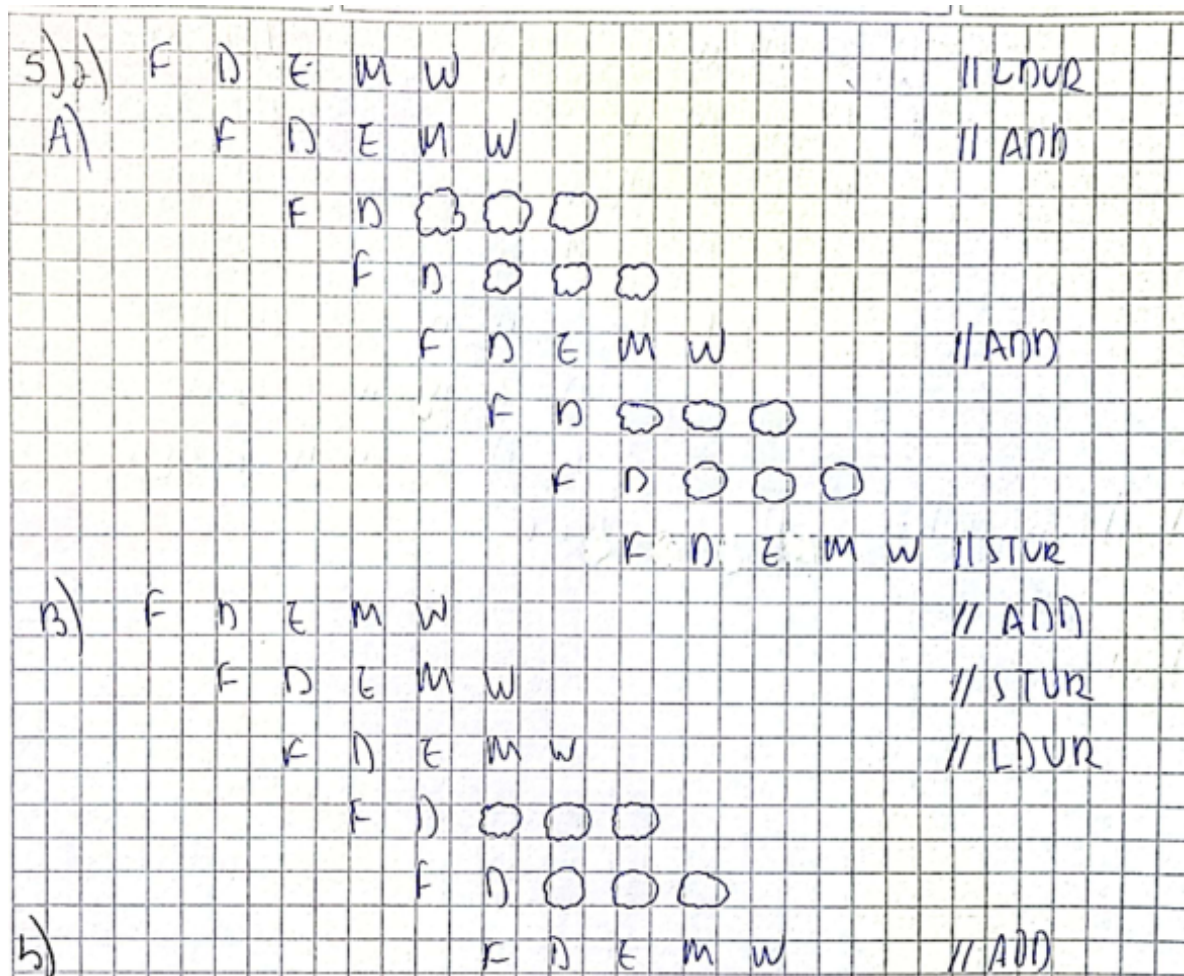 5)a) F D E M W // LDUR
A) F D E M W // ADD
F D
F D
F D E M W // ADD
F D
F D
F D E M W // STUR
B) F D E M W // ADD
F D E M W // STUR
F D E M W // LDUR
F D
F D
b) F D E M W // ADD